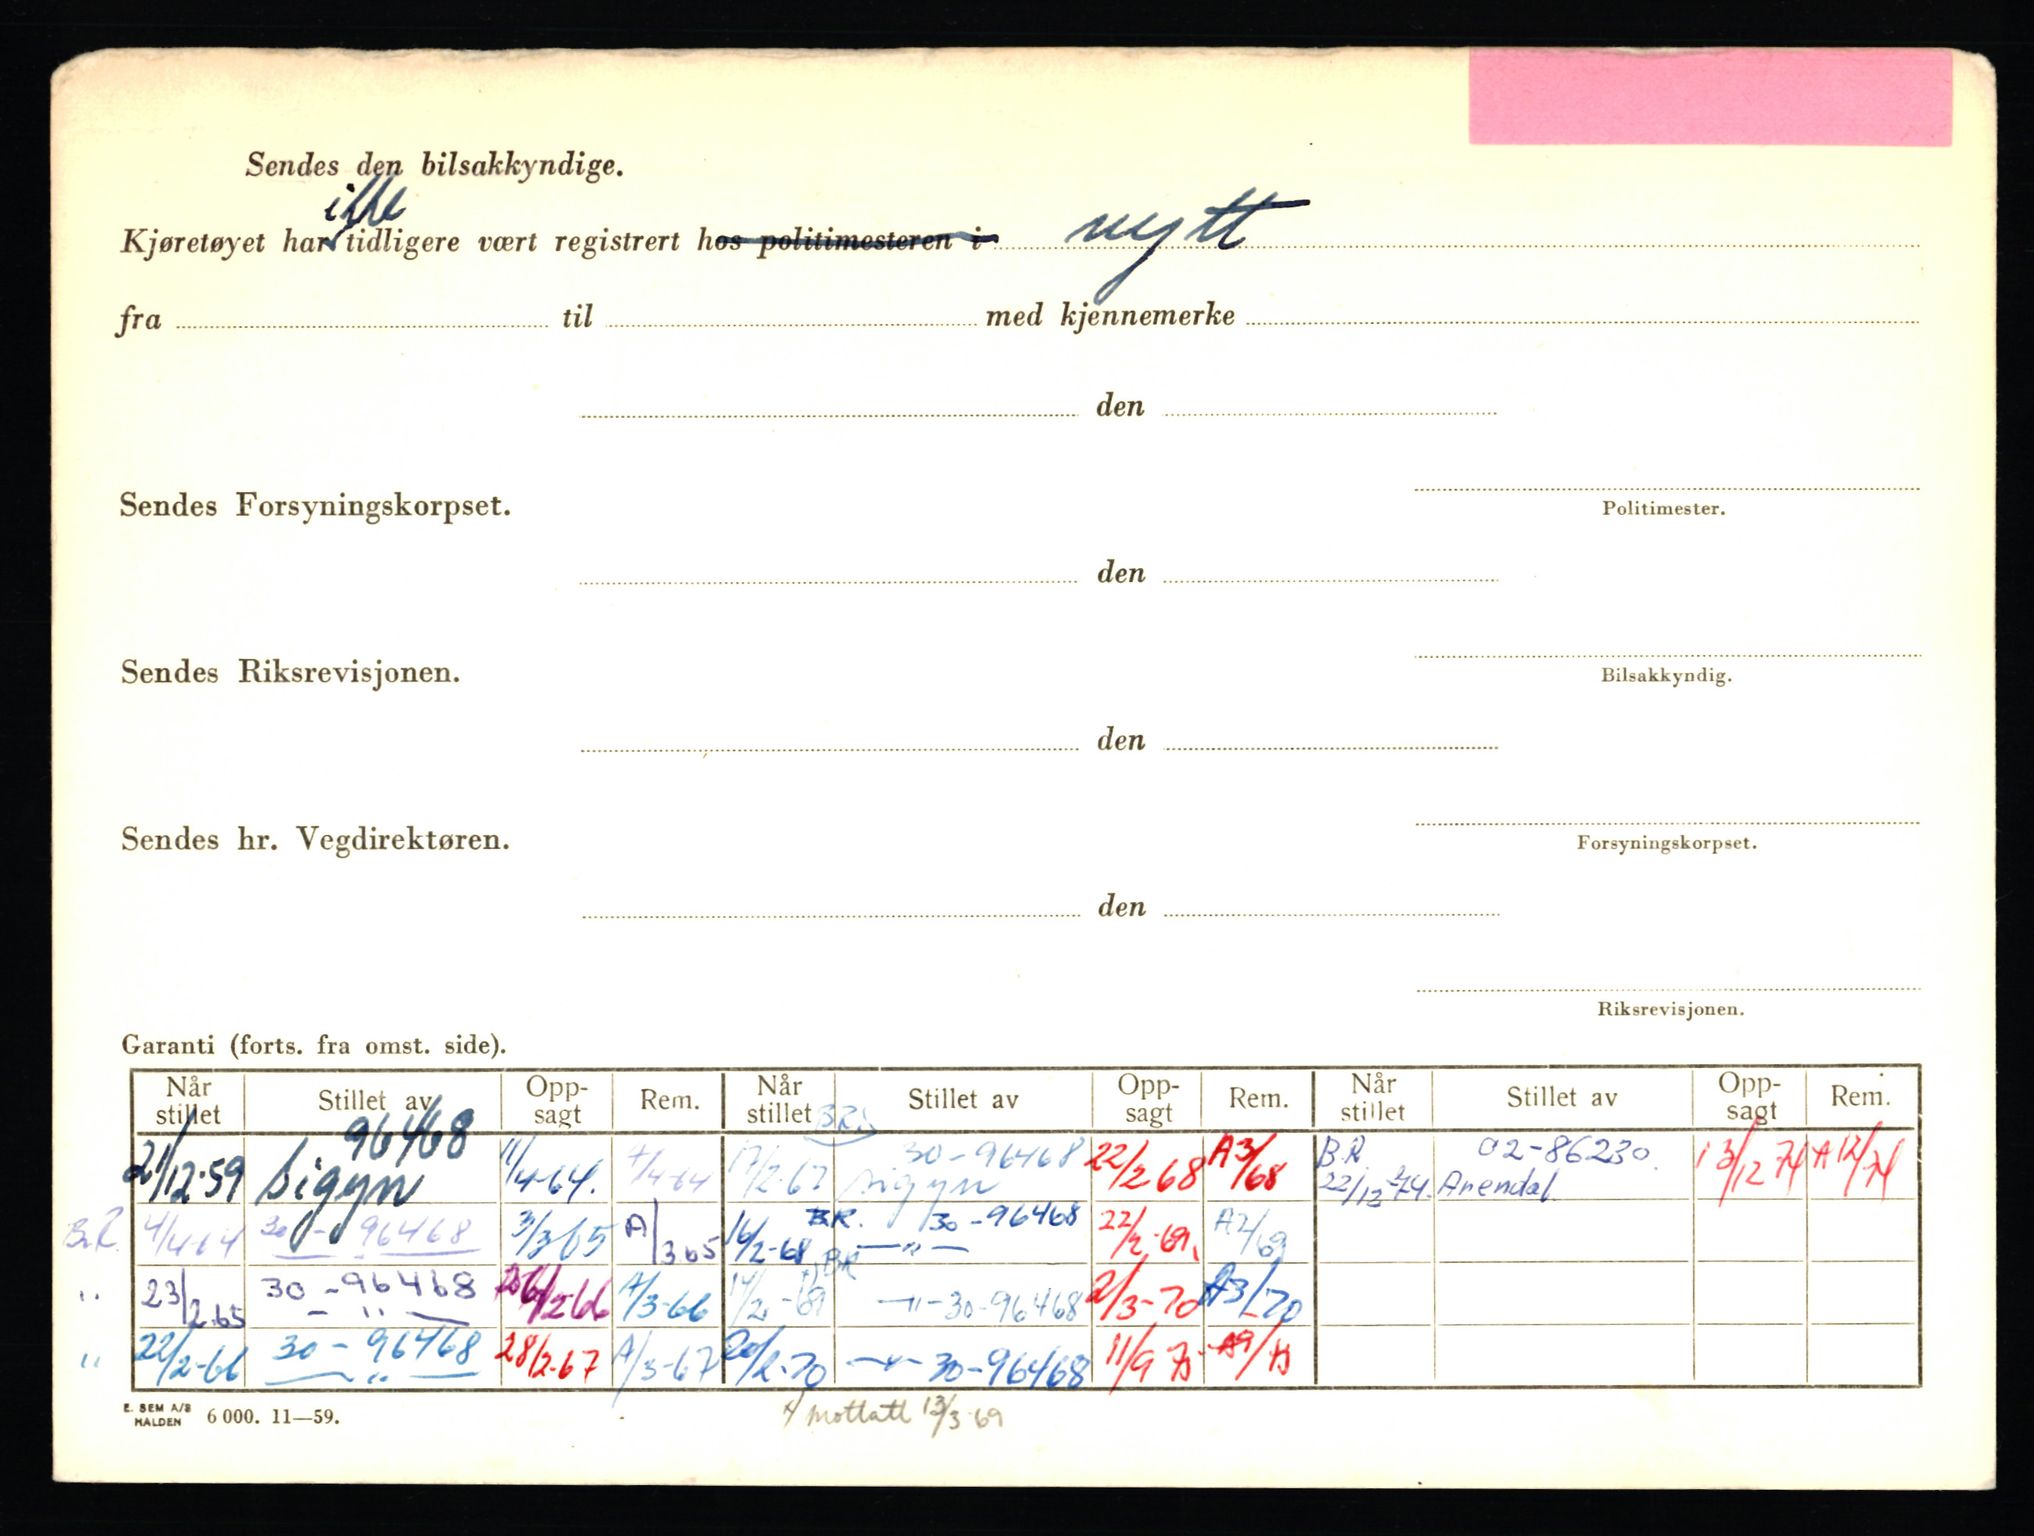 Sendes den bilsakkyndige.
ikke
Kjøretøyet har tidligere vært registrert hos politimesteren i nytt
fra til med kjennemerke
den
Sendes Forsyningskorpset.
Politimester.
den
Sendes Riksrevisjonen.
Bilsakkyndig.
den
Sendes hr. Vegdirektøren.
Forsyningskorpset.
den
Riksrevisjonen.
Garanti (forts. fra omst. side).
Når stillet Stillet av Opp-sagt Rem. Når stillet Stillet av Opp-sagt Rem. Når stillet Stillet av Opp-sagt Rem.
21/12-59 96468 Sigyn 11/4-64. 4/4-64 17/2-67 B.R. 30-96468 Sigyn 22/2 68 A3/68 B.R 22/12-74. 02-86230. Arendal 13/12 74 A 12/74
B.R. 4/4-64 30 - 96468 3/3 65 A/3 65 16/2-68 B.R. 30-96468 —"— 22/2-69. A2/69
" 23/2.65 30 - 96468 — " — 26/2-66 A/3-66 BR —"— 30-96468 2/3-70 A3/70
" 22/2-66 30 - 96468 — " — 28/2-67 A/3-67 20/2-70 —"— 30-96468 11/9 73 A9/73
E. SEM A/S HALDEN 6 000. 11—59.
Mottatt 13/3-69